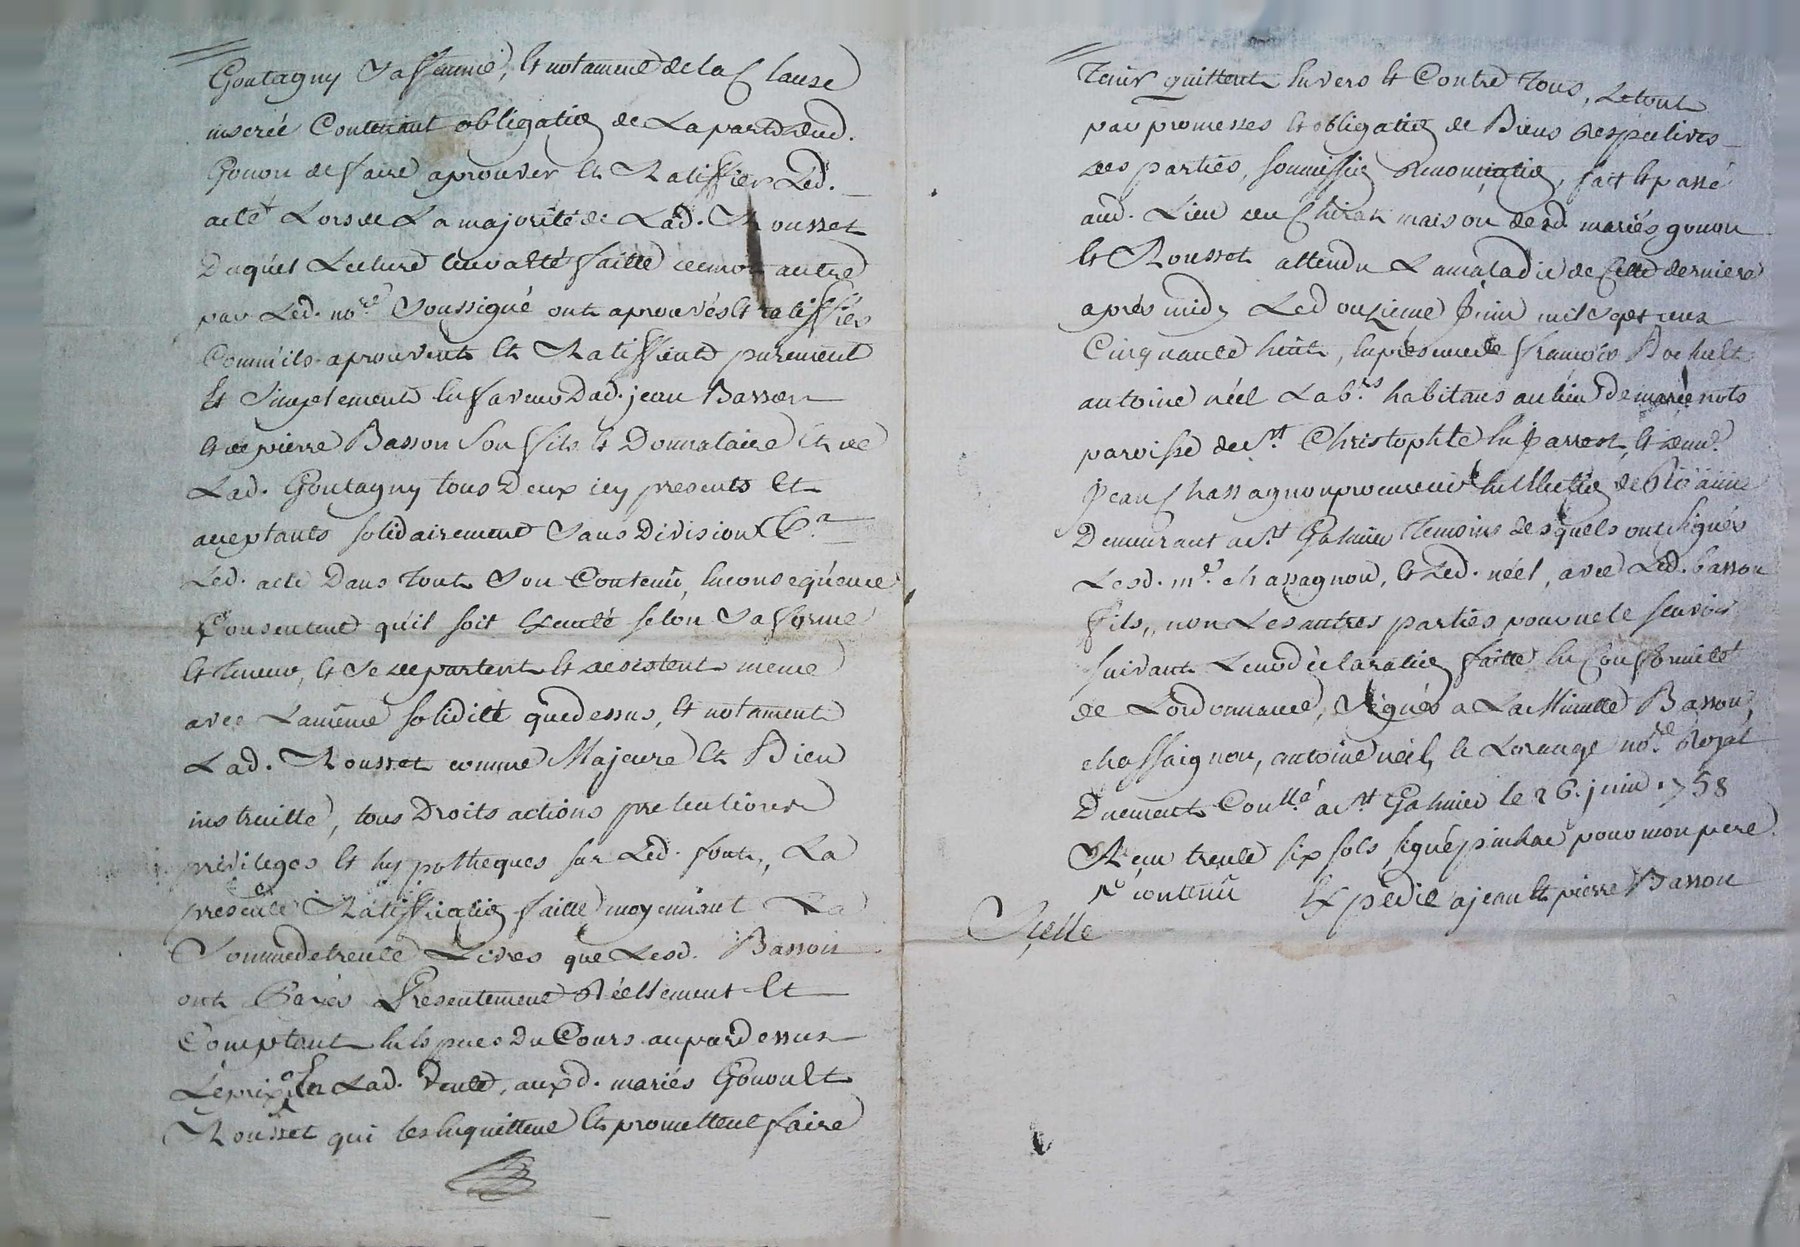 Goutagny Sa femme, Et notament de la Clause
inserée Contenant obligation de La part dud.
Gonon de faire aprouver Et Ratiffier Led.
acte Lors de La majorité de Lad. Rousset
Duquel Lecture Leur a été faitte de mot autre
par Led. nore Soussigné ont aprouvés Et ratiffiés
Comm'ils aprouvent Et Ratiffient purement
Et Simplement En faveur Dud. jean Basson
Et de pierre Basson Son fils Et Donnataire Et de
Lad. Goutagny tous Deux icy presents Et
aceptants solidairement Sans Division &c
Led. acte Dans Tout Son Contenu, En consequence
Consentent qu'il soit Executé selon Sa forme
Et teneur, Et Se departent Et desistent meme
avec La même solidité que dessus, Et notament
Lad. Rousset comme Majeure Et Bien
instruitte, tous Droits actions pretentions
privileges Et hypotheques sur Led. fonts, La
presente Ratiffication faitte moyennant La
Somme de trente Livres que Lesd. Basson
ont Payés Presentement Réellement Et
Comptant En Espèces Du Cours au par dessus
Le prix En Lad. Vente, auxd. mariés Gonon Et
Rousset qui les En quittent Et promettent faire
Tenir quittent Envers Et Contre Tous, Le tout
par promesses Et obligation de Biens Respectives
des parties, soumission Renonciation, fait Et passé
aud. Lieu du Chirat maison desd. mariés gonon
Et Rousset attendu La maladie de Cette derniere
après midy Led onzieme Juin mil sept cens
Cinquante huit, En presence de françois
antoine néel Labrs habitans au lieu De
paroisse de St Christophle En Jarrest, Et de me
Jean Chassagnon procureur En Election de Roanne
Demeurant a St Galmier Temoins desquels ont signés
Lesd. me chassagnon, Et Led. néel, avec Led. basson
fils, non Les autres parties pour ne le sçavoir
suivant Leur déclaration faitte En Conformité
de Lordonnance, Signés a La Minutte Basson,
chassaignon, antoine néel, Et Lorange nore Royal
Duement Contllé a St Galmier le 26. juin 1758
Reçu trente six sols signé pour mon pere
Rt contenu Expedié a jean Et pierre Basson